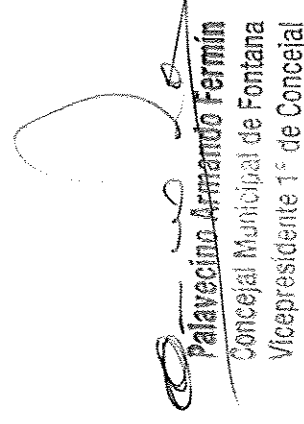 Palavecino Armando Fermín
Concejal Municipal de Fontana
Vicepresidente 1º de Concejal